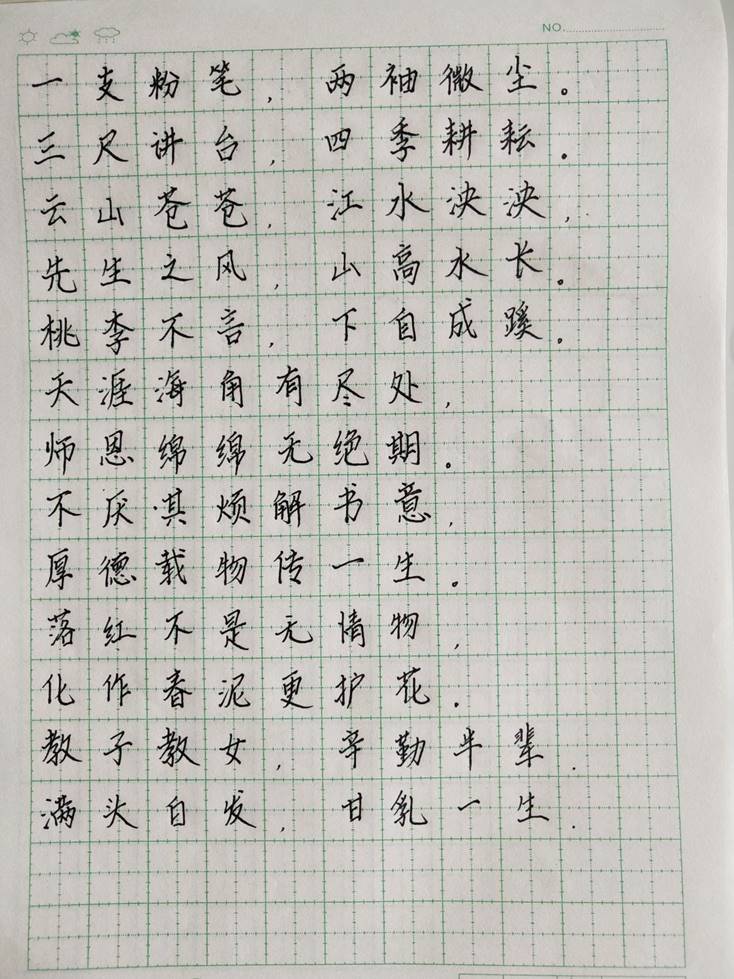 NO.
一支粉笔，两袖微尘。
三尺讲台，四季耕耘。
云山苍苍，江水泱泱，
先生之风，山高水长。
桃李不言，下自成蹊。
天涯海角有尽处，
师恩绵绵无绝期。
不厌其烦解书意，
厚德载物传一生。
落红不是无情物，
化作春泥更护花。
教子教女，辛勤半辈.
满头白发，甘乳一生.